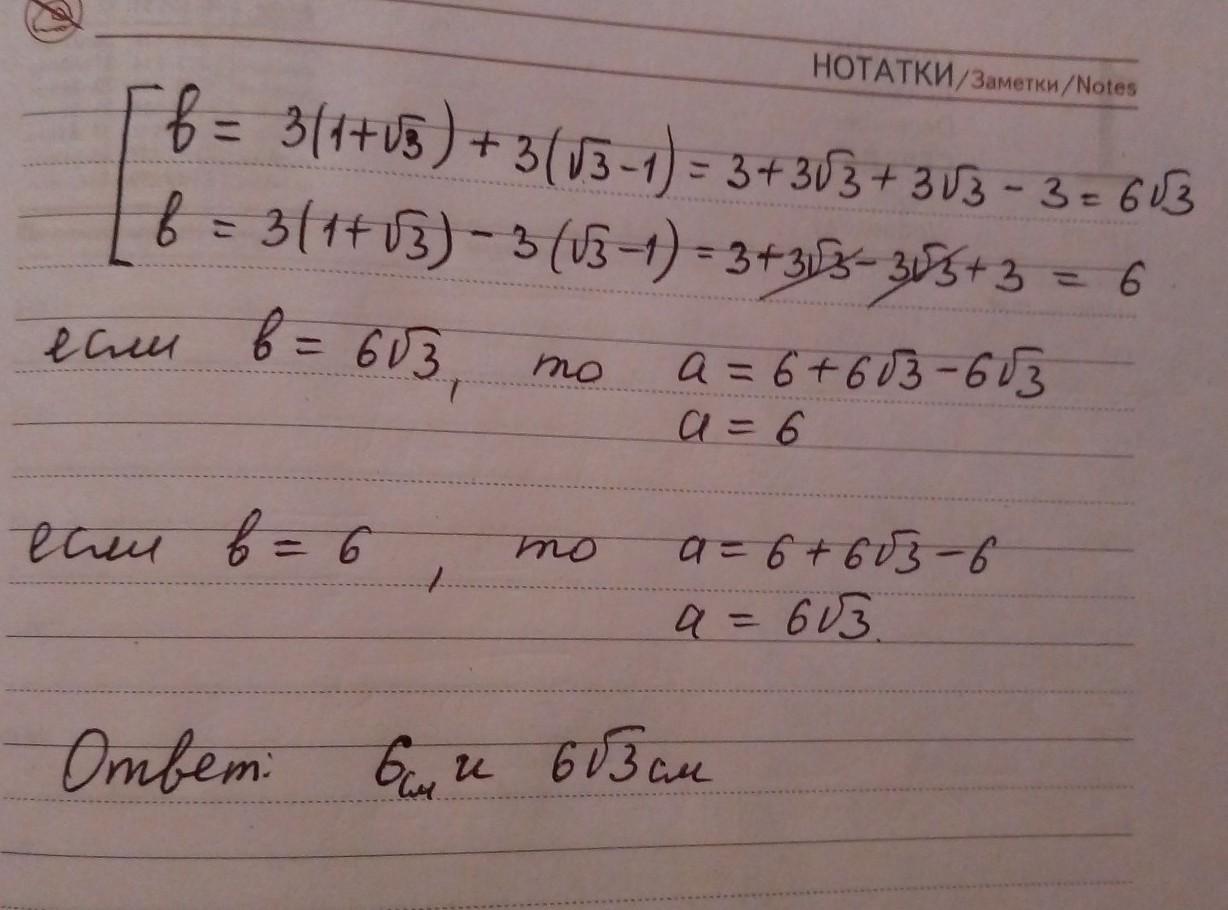 НОТАТКИ/Заметки/Notes
в = 3(1+√3) + 3(√3-1) = 3+3√3 + 3√3 - 3 = 6√3
в = 3(1+√3) - 3(√3-1) = 3+3√3 - 3√3 + 3 = 6
если в = 6√3, то а = 6+6√3-6√3
а = 6
если в = 6, то а = 6+6√3-6
а = 6√3.
Ответ: 6см и 6√3см